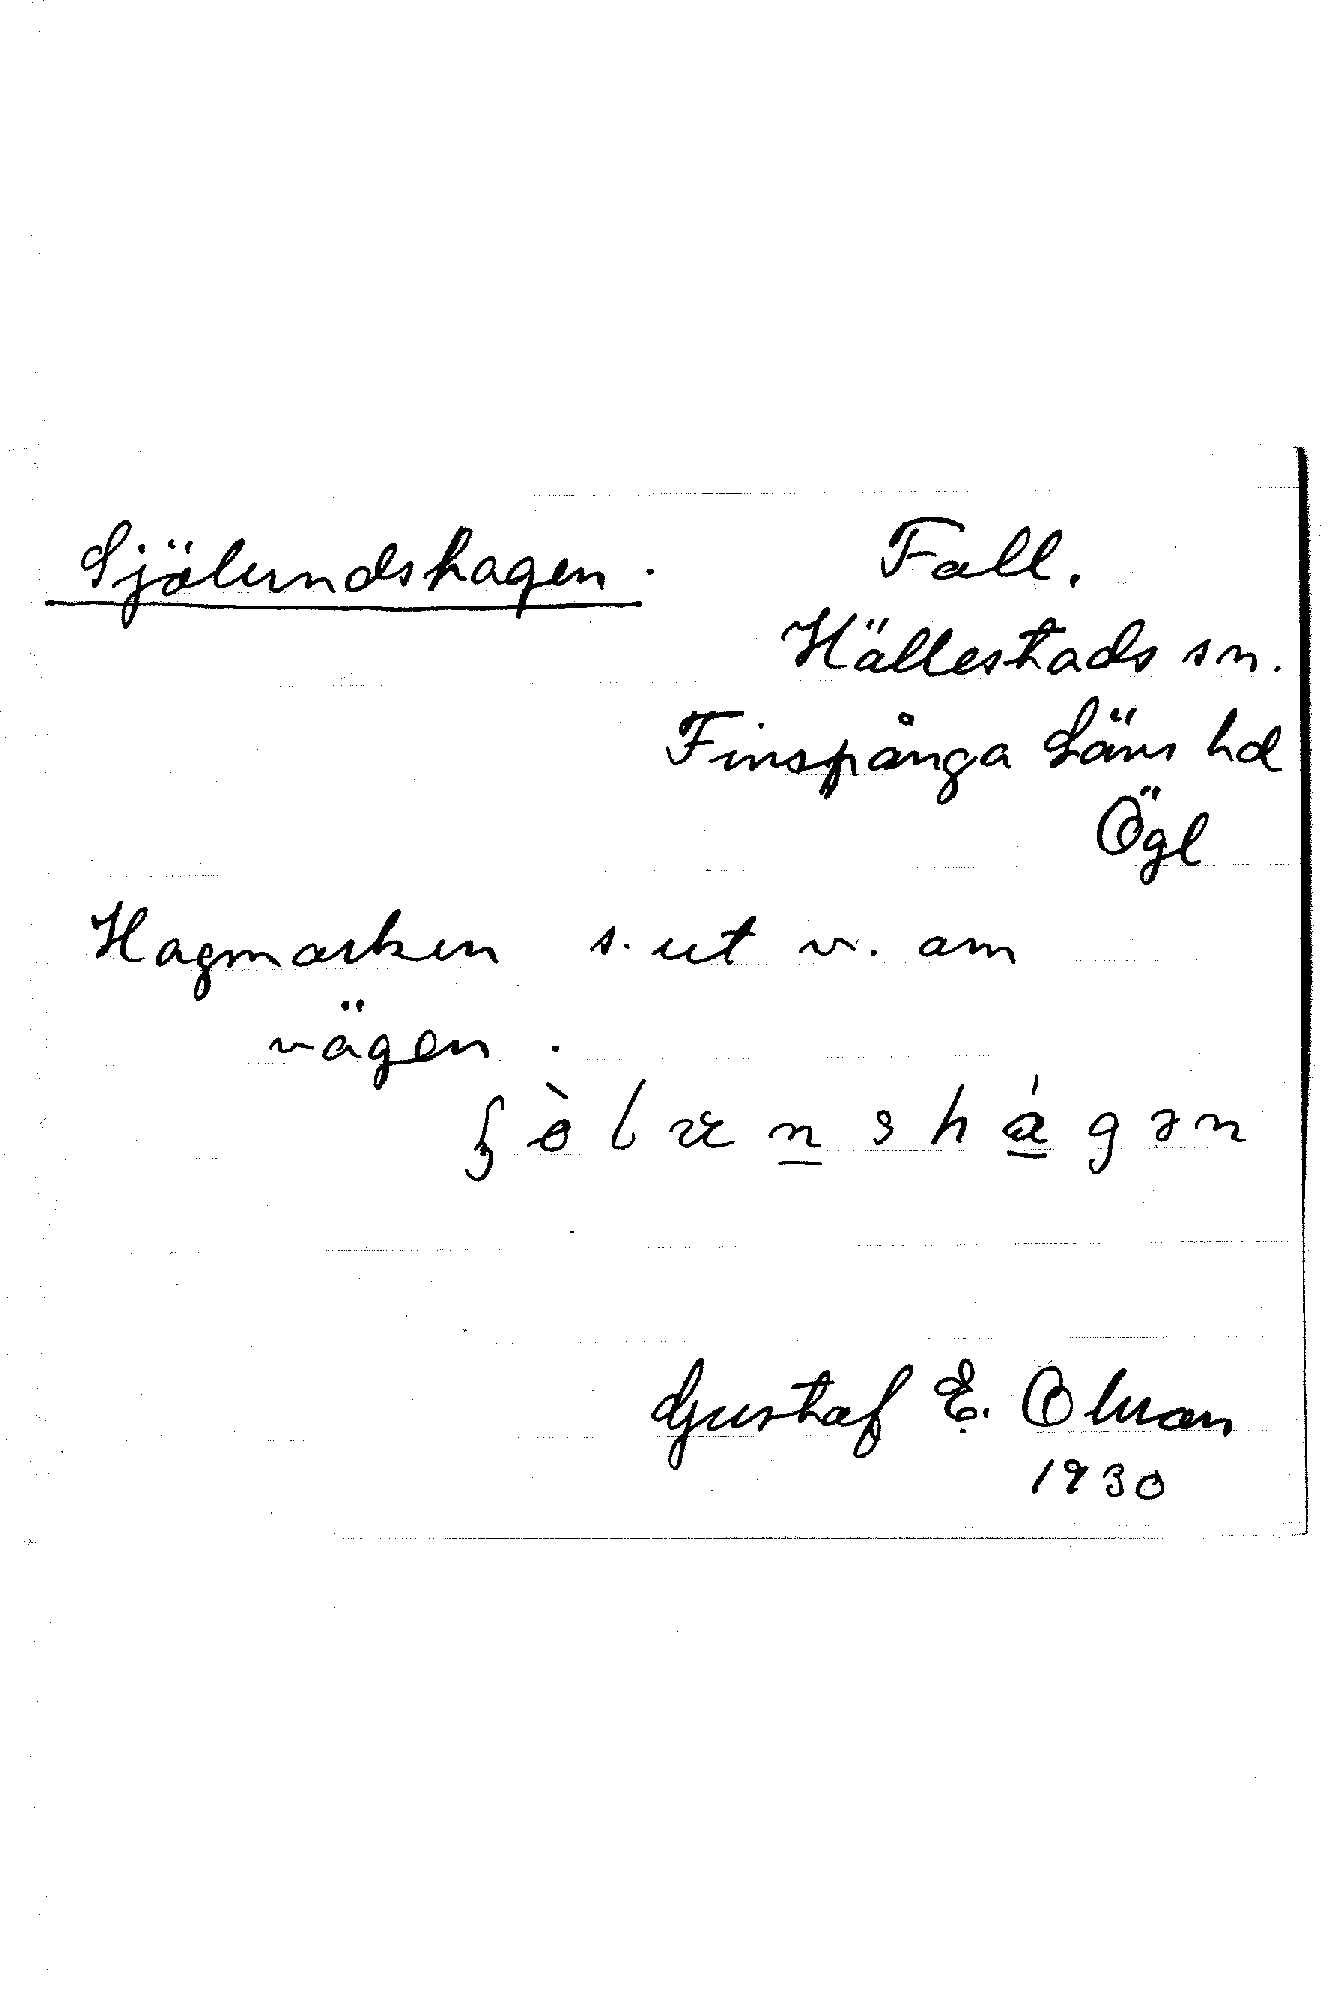 Sjölundshagen.
Fall.
Hällestads sn.
Finspånga Läns hd
Ögl
Hagmarken s. ut v. om
vägen.
Gustaf E. Olson
1930